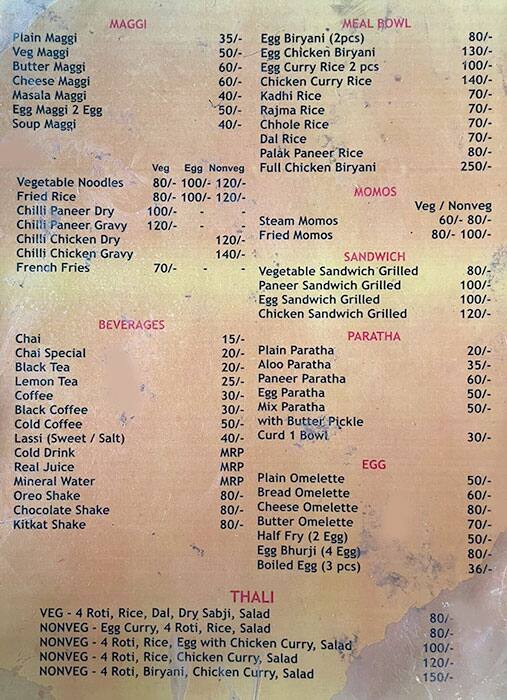 MAGGI
Plain Maggi 35/-
Veg Maggi 50/-
Butter Maggi 60/-
Cheese Maggi 60/-
Masala Maggi 40/-
Egg Maggi 2 Egg 50/-
Soup Maggi 40/-
Veg Egg Nonveg
Vegetable Noodles 80/- 100/- 120/-
Fried Rice 80/- 100/- 120/-
Chilli Paneer Dry 100/- - -
Chilli Paneer Gravy 120/- - -
Chilli Chicken Dry 120/-
Chilli Chicken Gravy 140/-
French Fries 70/- - -
BEVERAGES
Chai 15/-
Chai Special 20/-
Black Tea 20/-
Lemon Tea 25/-
Coffee 30/-
Black Coffee 30/-
Cold Coffee 50/-
Lassi (Sweet / Salt) 40/-
Cold Drink MRP
Real Juice MRP
Mineral Water MRP
Oreo Shake 80/-
Chocolate Shake 80/-
Kitkat Shake 80/-
MEAL BOWL
Egg Biryani (2pcs) 80/-
Egg Chicken Biryani 130/-
Egg Curry Rice 2 pcs 100/-
Chicken Curry Rice 140/-
Kadhi Rice 70/-
Rajma Rice 70/-
Chhole Rice 70/-
Dal Rice 70/-
Palak Paneer Rice 80/-
Full Chicken Biryani 250/-
MOMOS
Veg / Nonveg
Steam Momos 60/- 80/-
Fried Momos 80/- 100/-
SANDWICH
Vegetable Sandwich Grilled 80/-
Paneer Sandwich Grilled 100/-
Egg Sandwich Grilled 100/-
Chicken Sandwich Grilled 120/-
PARATHA
Plain Paratha 20/-
Aloo Paratha 35/-
Paneer Paratha 60/-
Egg Paratha 50/-
Mix Paratha 50/-
with Butter Pickle
Curd 1 Bowl 30/-
EGG
Plain Omelette 50/-
Bread Omelette 60/-
Cheese Omelette 80/-
Butter Omelette 70/-
Half Fry (2 Egg) 50/-
Egg Bhurji (4 Egg) 80/-
Boiled Egg (3 pcs) 36/-
THALI
VEG - 4 Roti, Rice, Dal, Dry Sabji, Salad 80/-
NONVEG - Egg Curry, 4 Roti, Rice, Salad 80/-
NONVEG - 4 Roti, Rice, Egg with Chicken Curry, Salad 100/-
NONVEG - 4 Roti, Rice, Chicken Curry, Salad 120/-
NONVEG - 4 Roti, Biryani, Chicken Curry, Salad 150/-